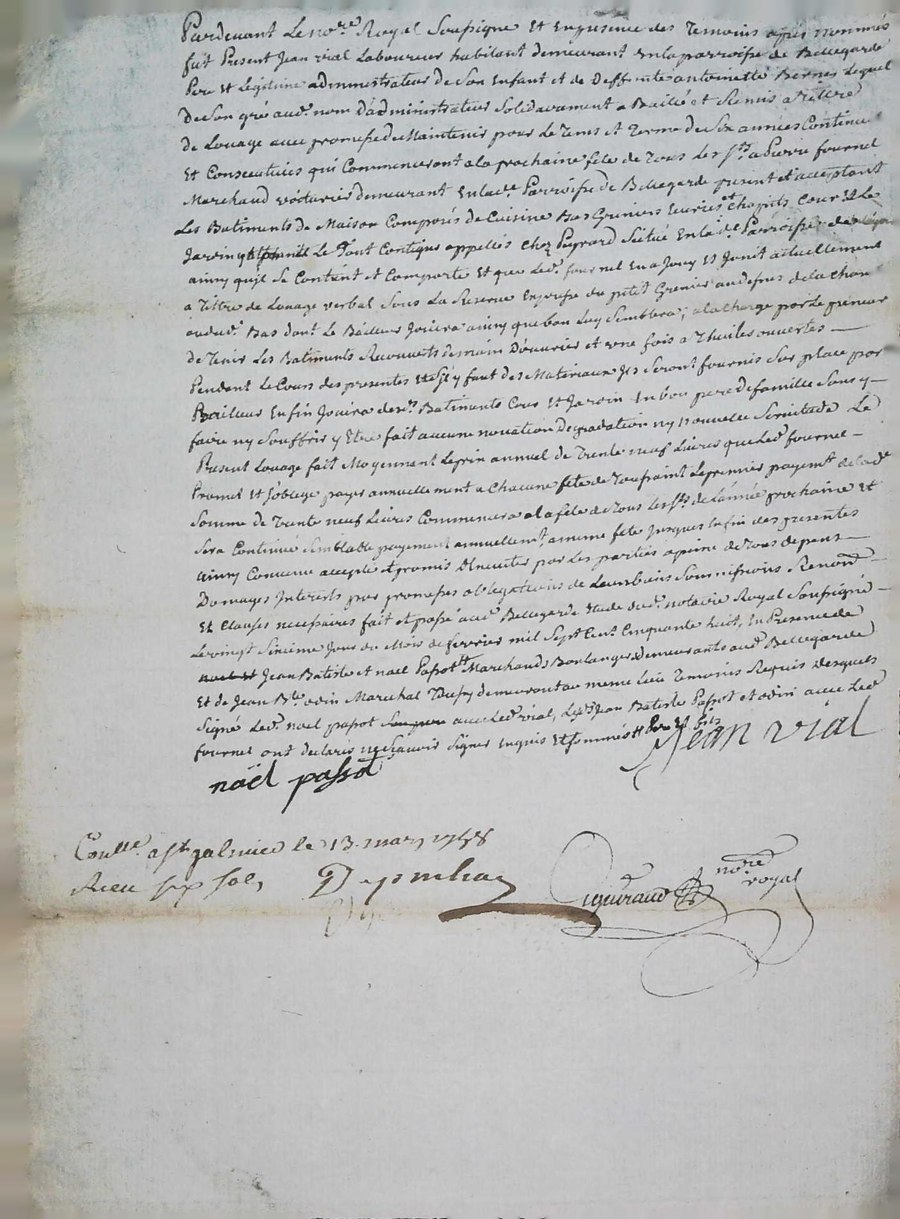 Pardevant Le no.re Royal Soussigne Et Enpresence des Temoins apres nommés
fut Present Jean vial Laboureur habitant demeurant Enla parroisse de Bellegarde
Pere et Legitime administrateur de Son Enfant et de Deffunte antoinette Bernes Lequel
De Son gré aud. nom D'administrateur Solidairement a Baillé et Remis a Tiltre
de Louage avec promesse de Maintenir pour Le Tems et Terme de Six années Continues
Et Consecutives qui Commenceront a la prochaine fete de Tous Les S.ts a Pierre fournel
Marchand voiturier demeurant Enlad.e Parroisse de Bellegarde present et acceptant
Les Batiments de Maison Composés de Cuisine Bas Greniers Ecuries et Chapits Cour Et Le
Jardin Le Tout Contigus appellés Chez Peyrard Situé Enlad.e Parroisse de
ainsy qu'il Se Contient et Comporte Et que Led. fournel En a Jouy Et Jouit actuellement
a Tiltre de Louage verbal Sous La Reserve Expresse du petit Grenier audessus de la Chambre
auduc. Bas dont Le Bailleur Jouira ainsy que bon Luy Semblera; a la Charge par Le preneur
de Tenir Les Batiments Recouverts de main D'ouvrier et une fois a Thuiles ouvertes —
Pendent Le Cours des presentes et Sil y faut des Materiaux Ils Seront fournis Sur place par
Bailleur Enfin Jouira desd.s Batiments Cour Et Jardin En bon pere de famille Sans y —
faire ny Souffrir y Etre fait aucune novation Degradation ny nouvelle Servitude Le
Present Louage fait Moyennent Leprix annuel de Trente neuf Livres que Led. fournel —
Promet Et S'oblige payer annuellement a Chacune fete de Toussaint Le premier payem.t de lad.e
Somme de Trente neuf Livres Commencera a la fete de Tous Les S.ts de L'année prochaine Et
Sera Continué Semblable payement annuellem.t a meme fete Jusques la fin des presentes
Ainsy Convenu accepté et promis Executer par Les parties a peine de Tous depens —
Domages Interests par promesses obligations de Leurs biens Soumissions Renon.on
Et Clauses necessaires fait et passé aud. Bellegarde Etude dud. notaire Royal Soussigné —
Le vingt Sixieme Jour du Mois de fevrier mil Sept Cent Cinquante huit, En Presence de
Jean Batiste et noel Passot Marchands Boulangers demeurants aud. Bellegarde
Et de Jean B.te odin Marechal demeurant au meme Lieu Temoins Requis Desquels
Signé Led. noel passot avec Led. vial, Led. Jean Batiste Passot et odin avec Led.
fournel ont declarés ne Sçavoir Signer Enquis Et Sommés
Jean vial
noël passot
Conllé. a St galmier le 13. mars 1758
Receu six sols
no.re
royal